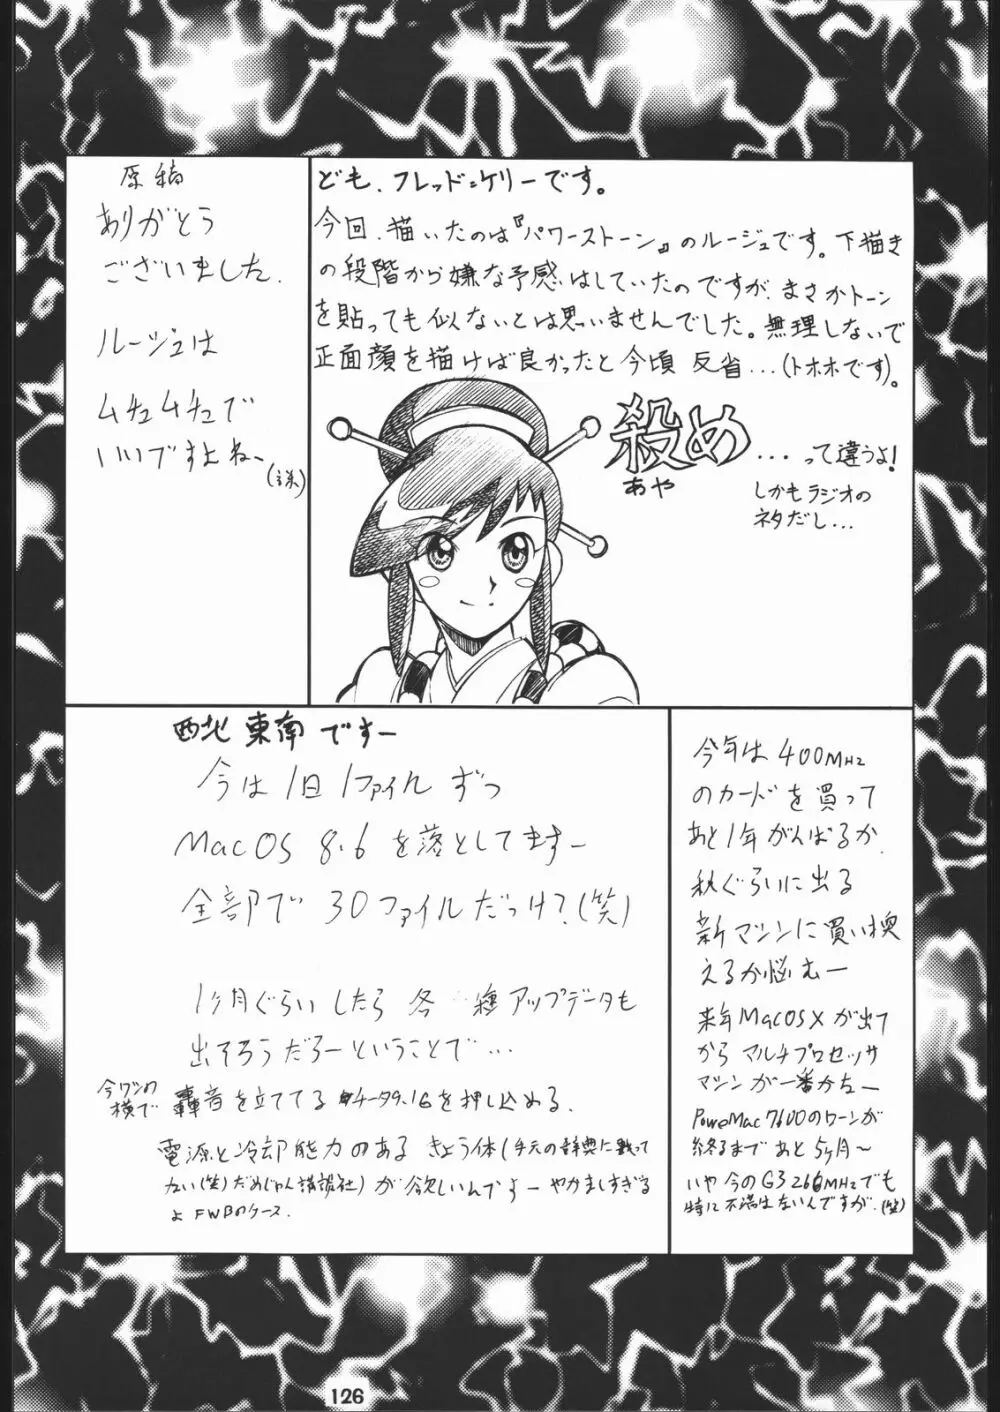 原稿
ありがとう
ございました.
ルージュは
ムチュムチュで
いいですよねー
ども、フレッド=ケリーです。
今回、描いたのは『パワーストーン』のルージュです。下描き
の段階から嫌な予感はしていたのですが、まさかトーン
を貼っても似ないとは思いませんでした。無理しないで
正面顔を描けば良かったと今頃 反省...(トホホです)。
殺め
あや
...って違うよ!
しかもラジオの
ネタだし...
西北 東南 ですー
今は1日1ファイル ずつ
MacOS 8.6 を落としてますー
全部で 30ファイルだっけ?(笑)
1ヶ月ぐらいしたら 各種アップデータも
出そろうだろーということで...
今ワシの
横で
轟音を立ててる チータ9.1Gを押し込める.
電源と冷却能力のある きょう体(手元の辞典に載って
ない(笑)だめじゃん講談社)が欲しいんですよーやかましすぎる
よ FWBのケース.
今年は 400MHz
のカードを買って
あと1年がんばるか.
秋ぐらいに出る
新マシンに買い換
えるか悩むー
来年MacOSXが出て
から マルチプロセッサ
マシンが一番かなー
PowerMac7600のローンが
終るまで あと5ヶ月〜
いや 今のG3 266MHzでも
特に不満はないんですが.(笑)
126